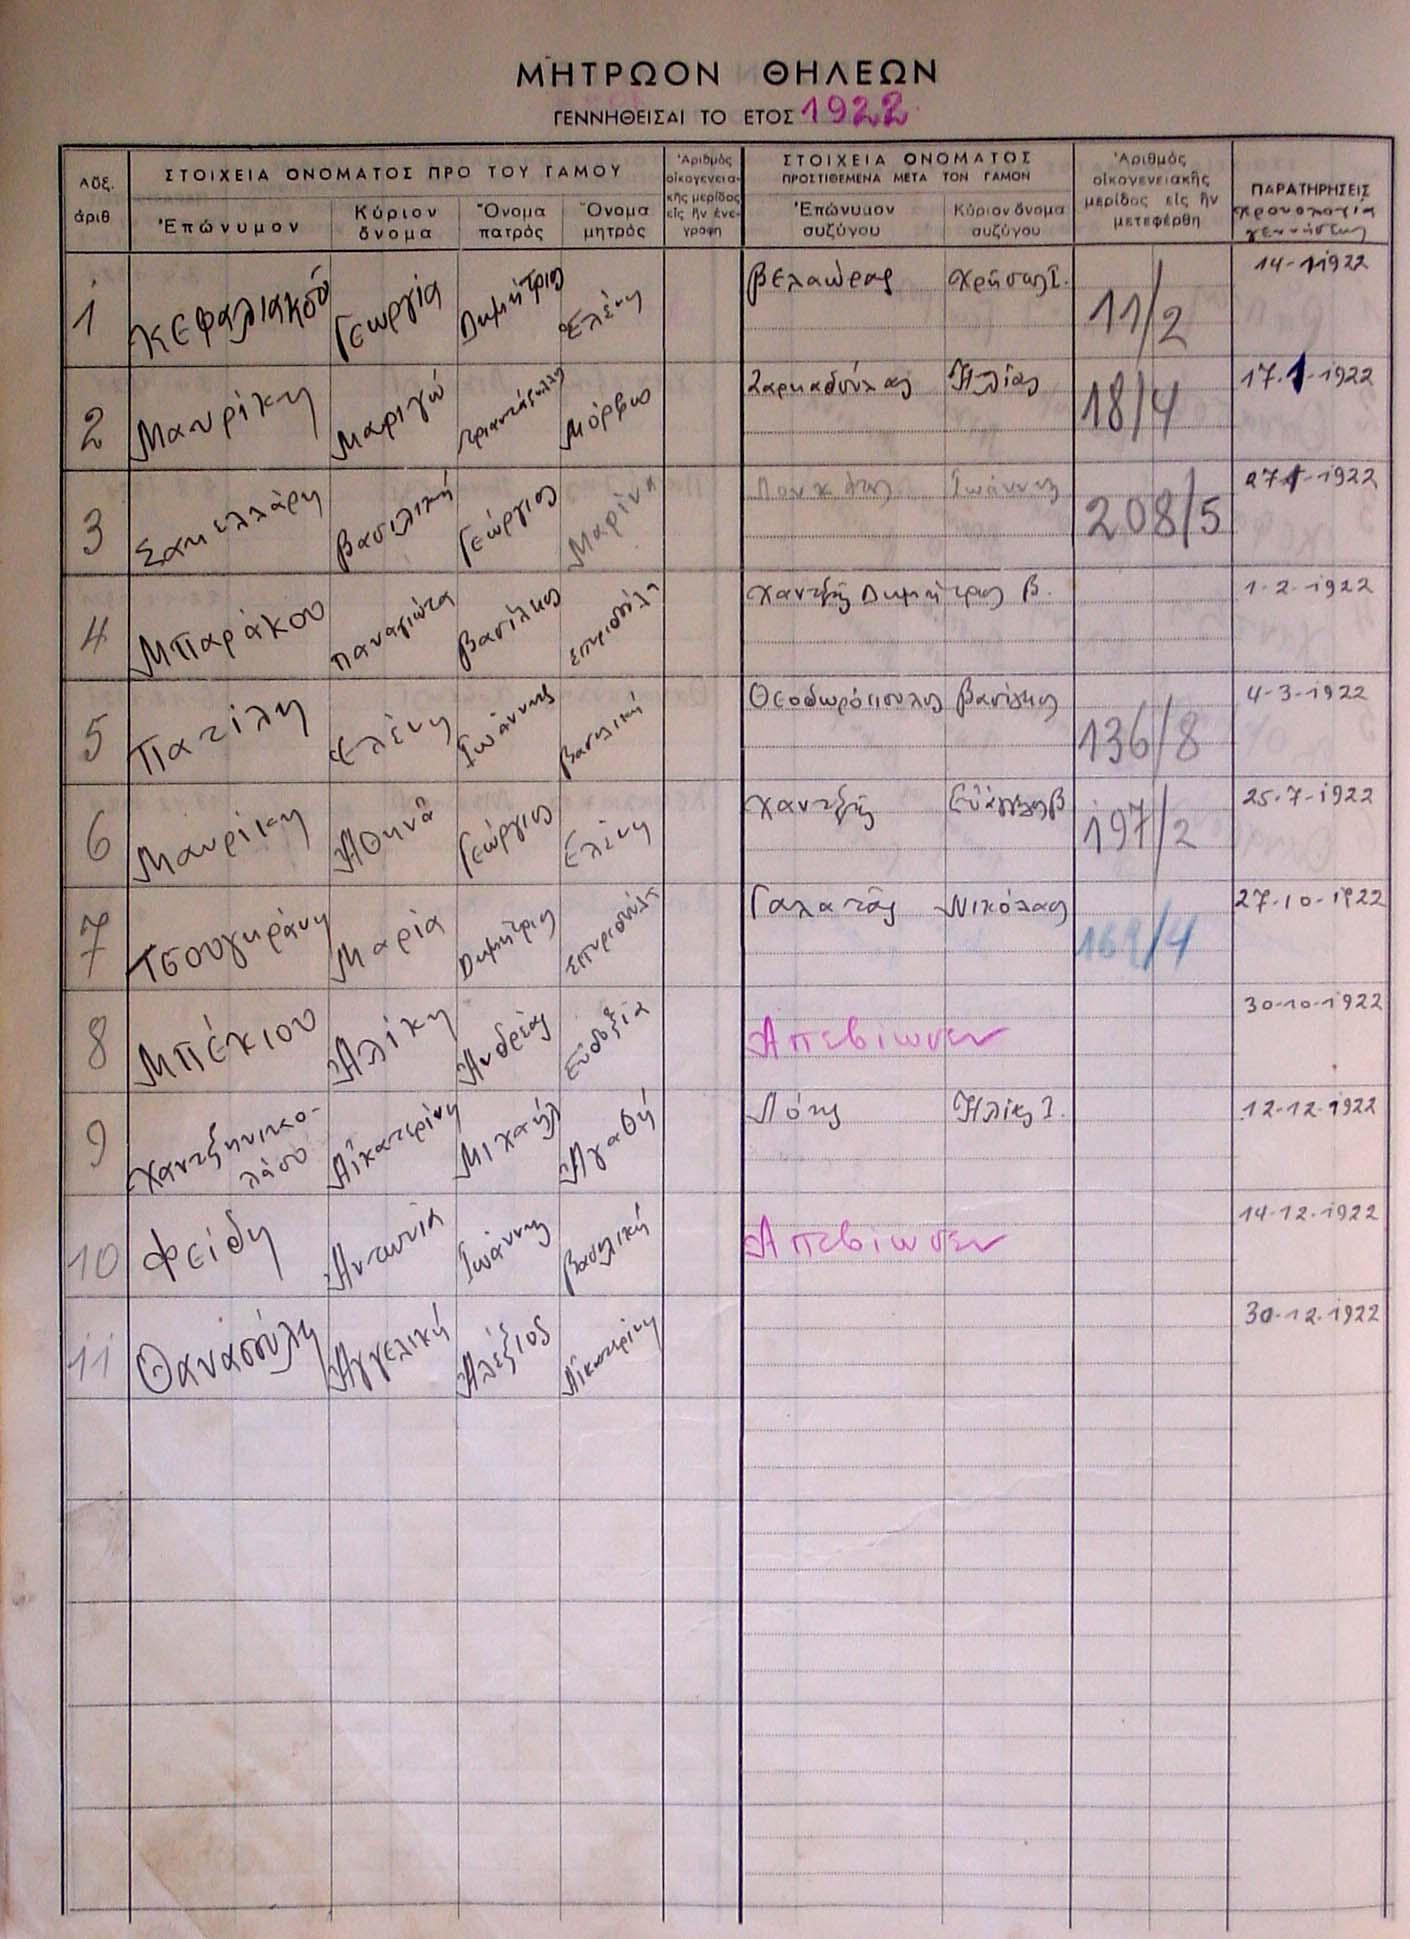 ΜΗΤΡΩΟΝ ΘΗΛΕΩΝ
ΓΕΝΝΗΘΕΙΣΑΙ ΤΟ ΕΤΟΣ 1922
Αὔξ. ἀριθ.
ΣΤΟΙΧΕΙΑ ΟΝΟΜΑΤΟΣ ΠΡΟ ΤΟΥ ΓΑΜΟΥ
Ἐπώνυμον
Κύριον ὄνομα
Ὄνομα πατρός
Ὄνομα μητρός
Ἀριθμὸς οἰκογενειακῆς μερίδος εἰς ἣν ἐνεγράφη
ΣΤΟΙΧΕΙΑ ΟΝΟΜΑΤΟΣ
ΠΡΟΣΤΙΘΕΜΕΝΑ ΜΕΤΑ ΤΟΝ ΓΑΜΟΝ
Ἐπώνυμον συζύγου
Κύριον ὄνομα συζύγου
Ἀριθμὸς οἰκογενειακῆς μερίδος εἰς ἣν μετεφέρθη
ΠΑΡΑΤΗΡΗΣΕΙΣ
χρονολογία γεννήσεως
1 Κεφαλιακοῦ Γεωργία Δημήτριος Ἑλένη Βελαώρας Χρῆστος Ι. 11/2 14-1-1922
2 Μαυρίκη Μαριγώ Τριαντάφυλλος Μόρφω Ζαρκαδούλας Ἠλίας 18/4 17-1-1922
3 Σακελλάρη Βασιλική Γεώργιος Μαρίνα Ἰωάννης 208/5 27-1-1922
4 Μπαράκου Παναγιώτα Βασίλειος Σπυριδούλα Χαντζῆς Δημήτριος Β. 1-2-1922
5 Πατίλη Ἑλένη Ἰωάννης Βασιλική Θεοδωρόπουλος Βασίλειος 136/8 4-3-1922
6 Μαυρίκη Ἀθηνᾶ Γεώργιος Ἑλένη Χαντζῆς Εὐάγγελος Β 197/2 25-7-1922
7 Τσουγκράνη Μαρία Δημήτριος Σπυριδούλα Γαλατᾶς Νικόλαος 169/4 27-10-1922
8 Μπέκιου Ἀλίκη Ἀνδρέας Εὐδοξία Ἀπεβίωσεν 30-10-1922
9 Χαντζηνικολάου Αἰκατερίνη Μιχαήλ Ἀγαθή Λότης Ἠλίας Ι. 12-12-1922
10 Φείδη Ἀντωνία Ἰωάννης Βασιλική Ἀπεβίωσεν 14-12-1922
11 Θανασούλη Ἀγγελική Ἀλέξιος Αἰκατερίνη 30-12-1922